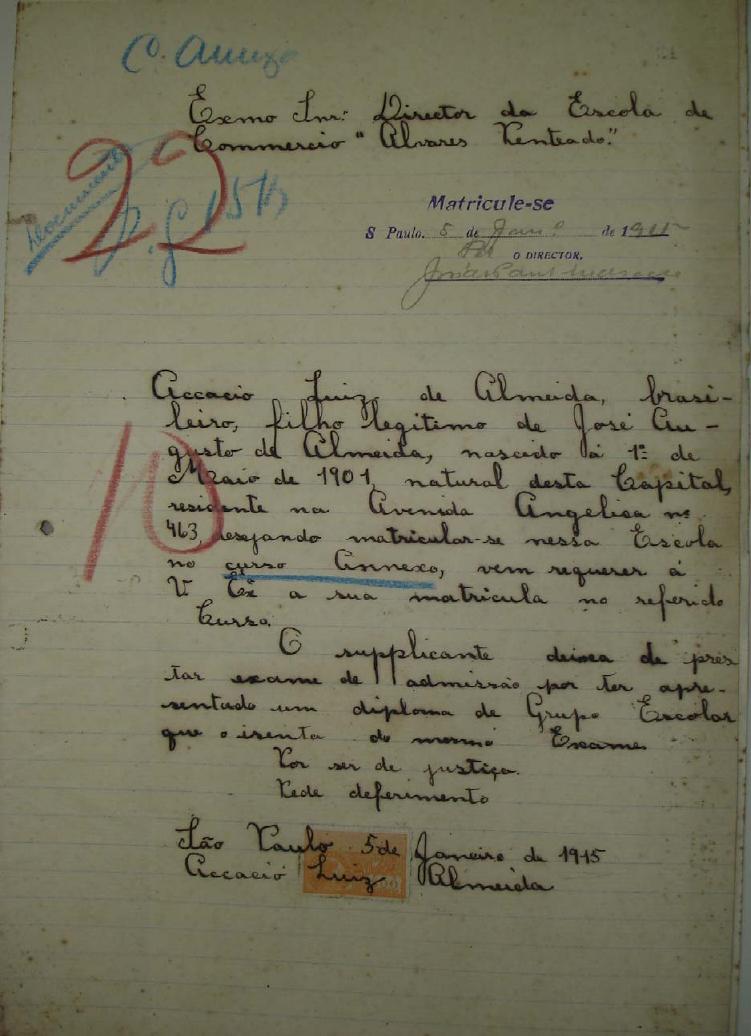 C. Annexo
Exmo Snr: Director da Escola de
Commercio "Alvares Penteado."
Documento
22
Matricule-se
S Paulo, 5 de Jan.º de 1915
O DIRECTOR,
Accacio Luiz de Almeida, brasi-
leiro, filho legitimo de José Au-
gusto de Almeida, nascido á 1º de
Maio de 1901, natural desta Capital,
residente na Avenida Angelica nº
463, desejando matricular-se nessa Escola
no curso Annexo, vem requerer á
V Exª a sua matricula no referido
Curso.
10
O supplicante deixa de pres
tar exame de admissão por ter apre-
sentado um diploma de Grupo Escolar
que o isenta do mesmo Exame.
Por ser de justiça.
Pede deferimento
São Paulo 5 de Janeiro de 1915
Accacio Luiz Almeida